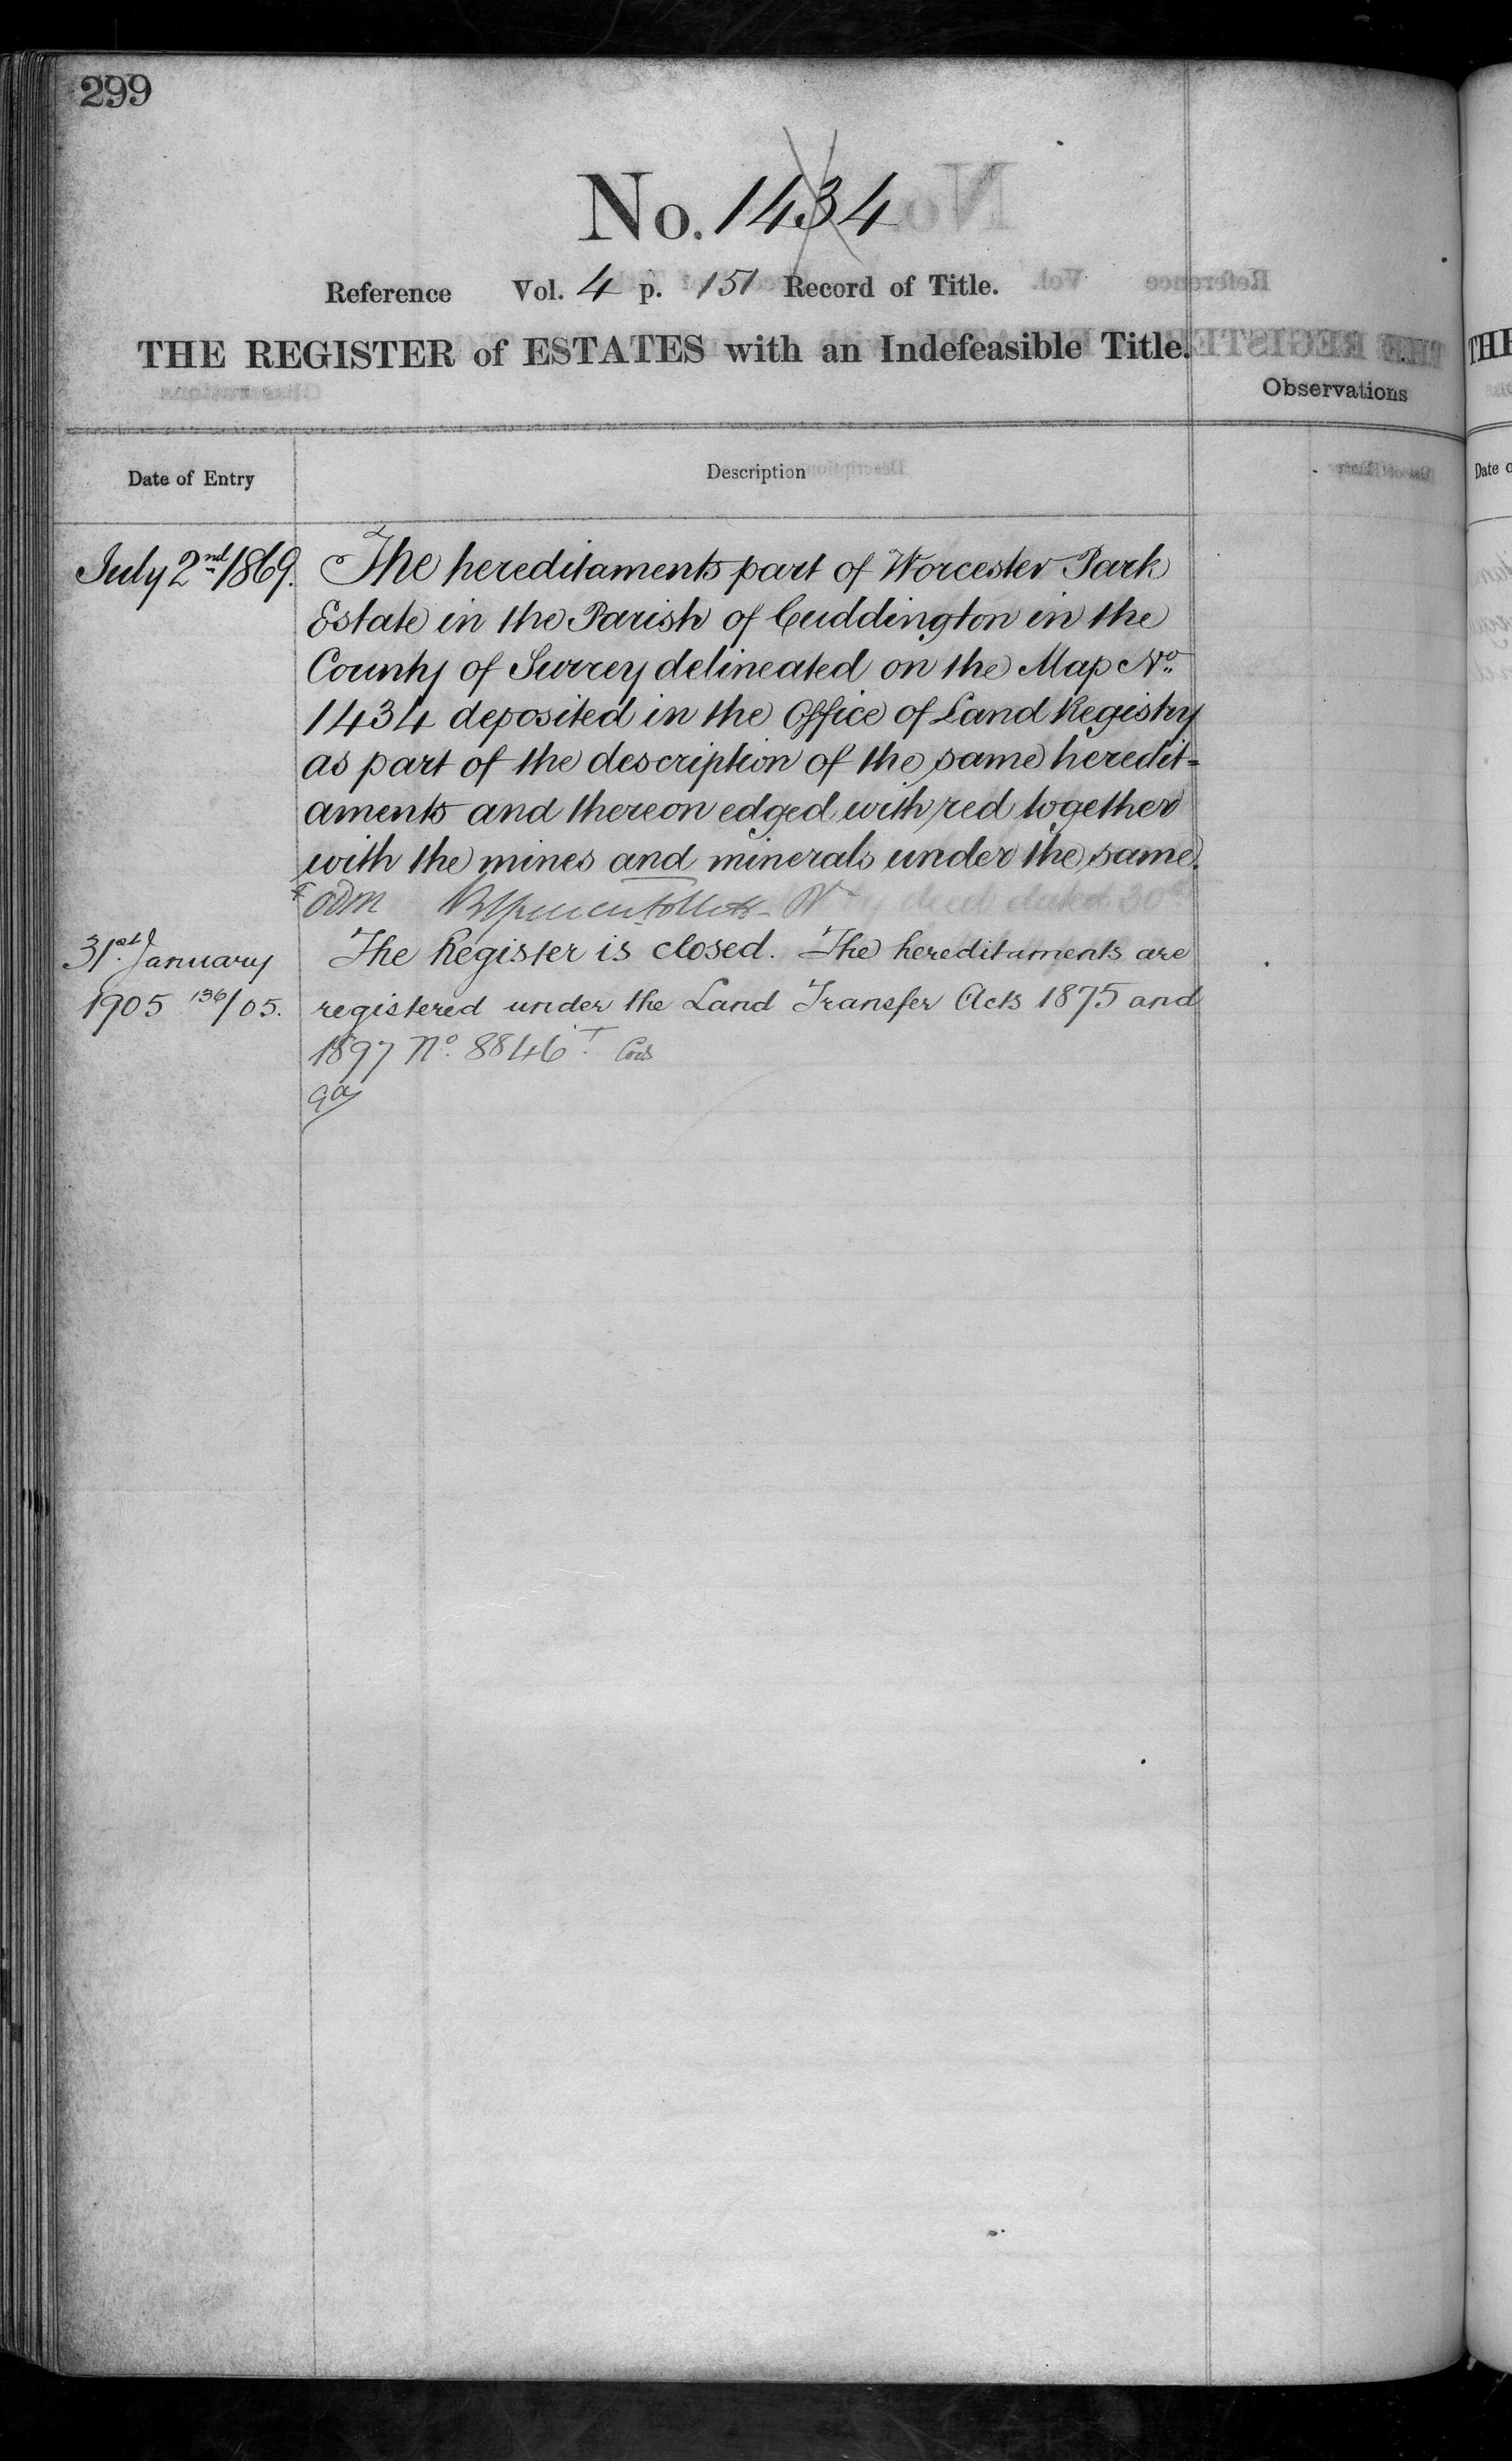 299
No. 1434
Reference Vol. 4 p. 151 Record of Title.
THE REGISTER of ESTATES with an Indefeasible Title.
Observations
Date of Entry
Description
July 2nd 1869.
The hereditaments part of Worcester Park
Estate in the Parish of Cuddington in the
County of Surrey delineated on the Map No.
1434 deposited in the Office of Land Registry
as part of the description of the same heredit=
aments and thereon edged with red together
with the mines and minerals under the same.
31st January
1905 136/05.
The Register is closed. The hereditaments are
registered under the Land Transfer Acts 1875 and
1897 No. 8846
THE
Date